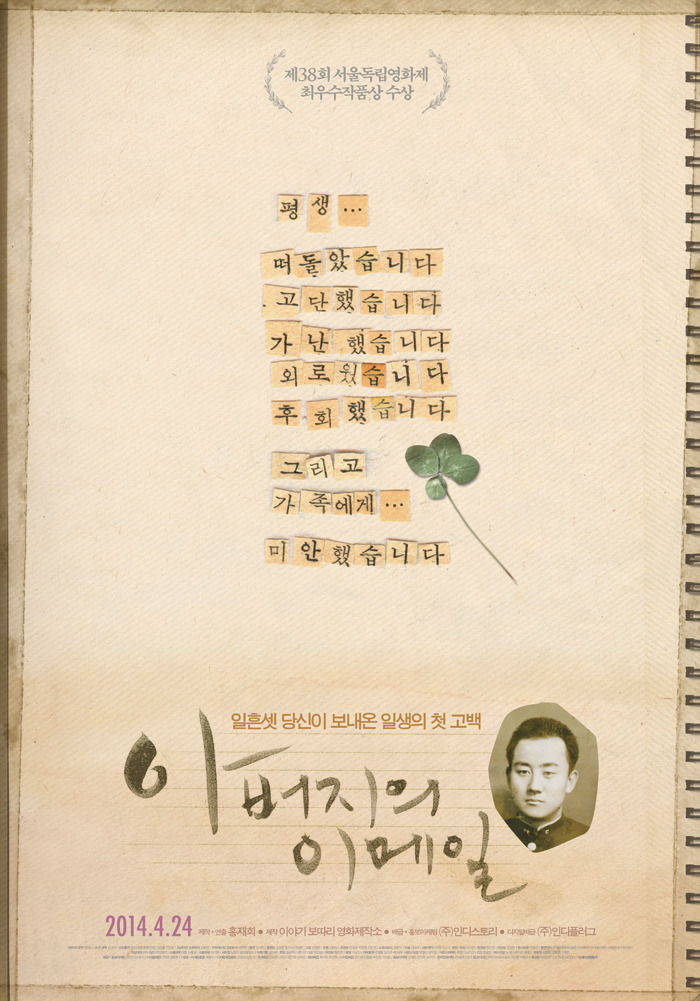 제38회 서울독립영화제
최우수작품상 수상
평생...
떠돌았습니다
고단했습니다
가난했습니다
외로웠습니다
후회했습니다
그리고
가족에게...
미안했습니다
일흔셋 당신이 보내온 일생의 첫 고백
아버지의
이메일
2014.4.24 제작·연출 홍재희 ● 제작 이야기 보따리 영화제작소 ● 배급·홍보마케팅 (주)인디스토리 ● 디지털배급 (주)인디플러그